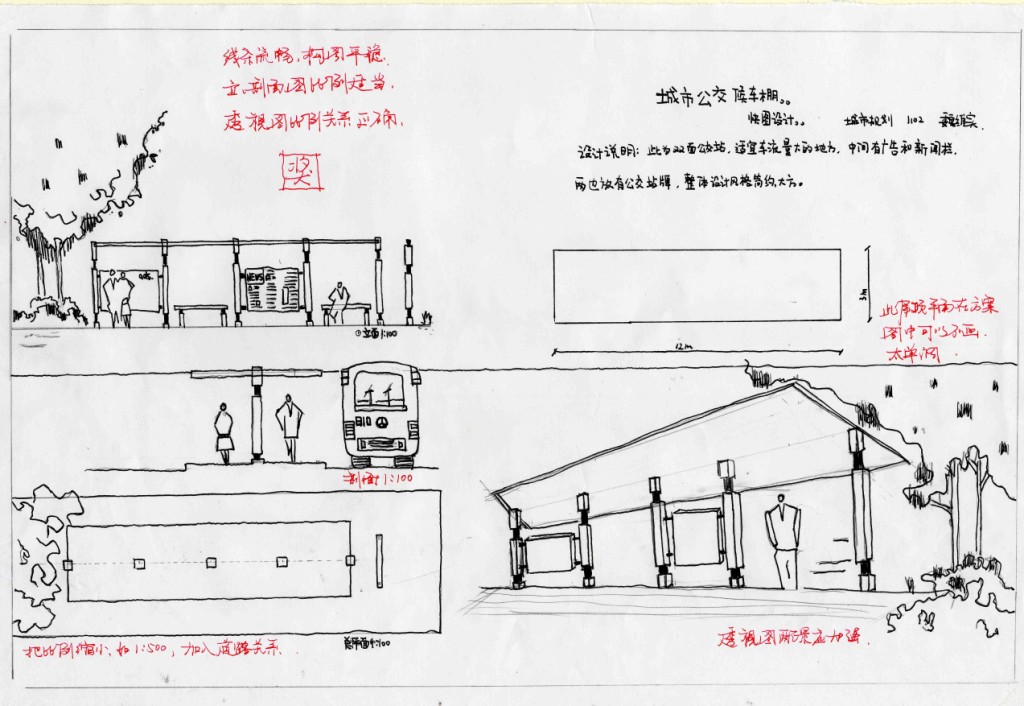 线条流畅，构图平稳.
立、剖面图比例适当，
透视图比例关系正确.
奖
城市公交候车棚。。
快图设计。。 城市规划 1102
设计说明：此为双面公交站，适宜车流量大的地方，中间有广告和新闻栏.
两边放有公交站牌，整体设计风格简约大方。
NEWS
①立面1:100
3m
12m
此屋顶平面在方案
图中可以不画.
太单调.
剖面1:100
总平面1:100
把比例缩小，如1:500，加入道路关系.
透视图配景应加强.